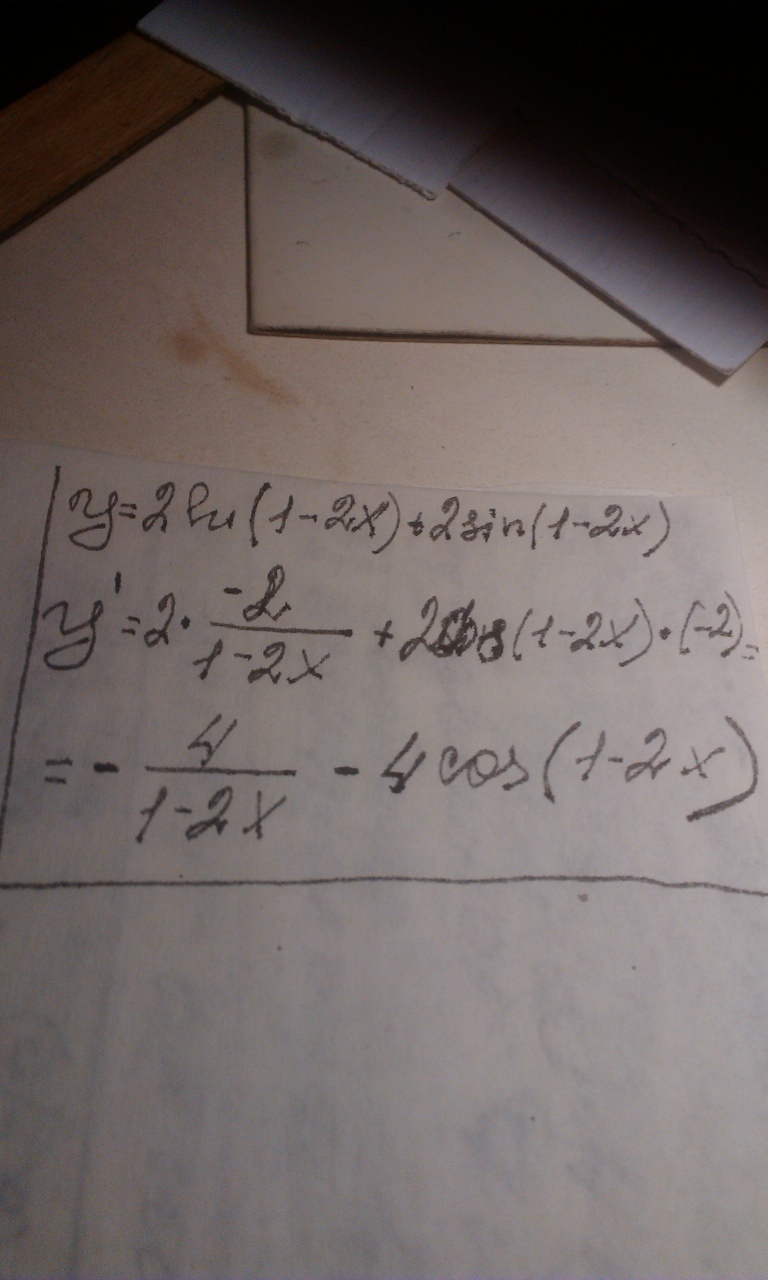 y=2ln(1-2x)+2sin(1-2x)
y'=2·\frac{-2}{1-2x}+2cos(1-2x)·(-2)=
=-\frac{4}{1-2x}-4cos(1-2x)